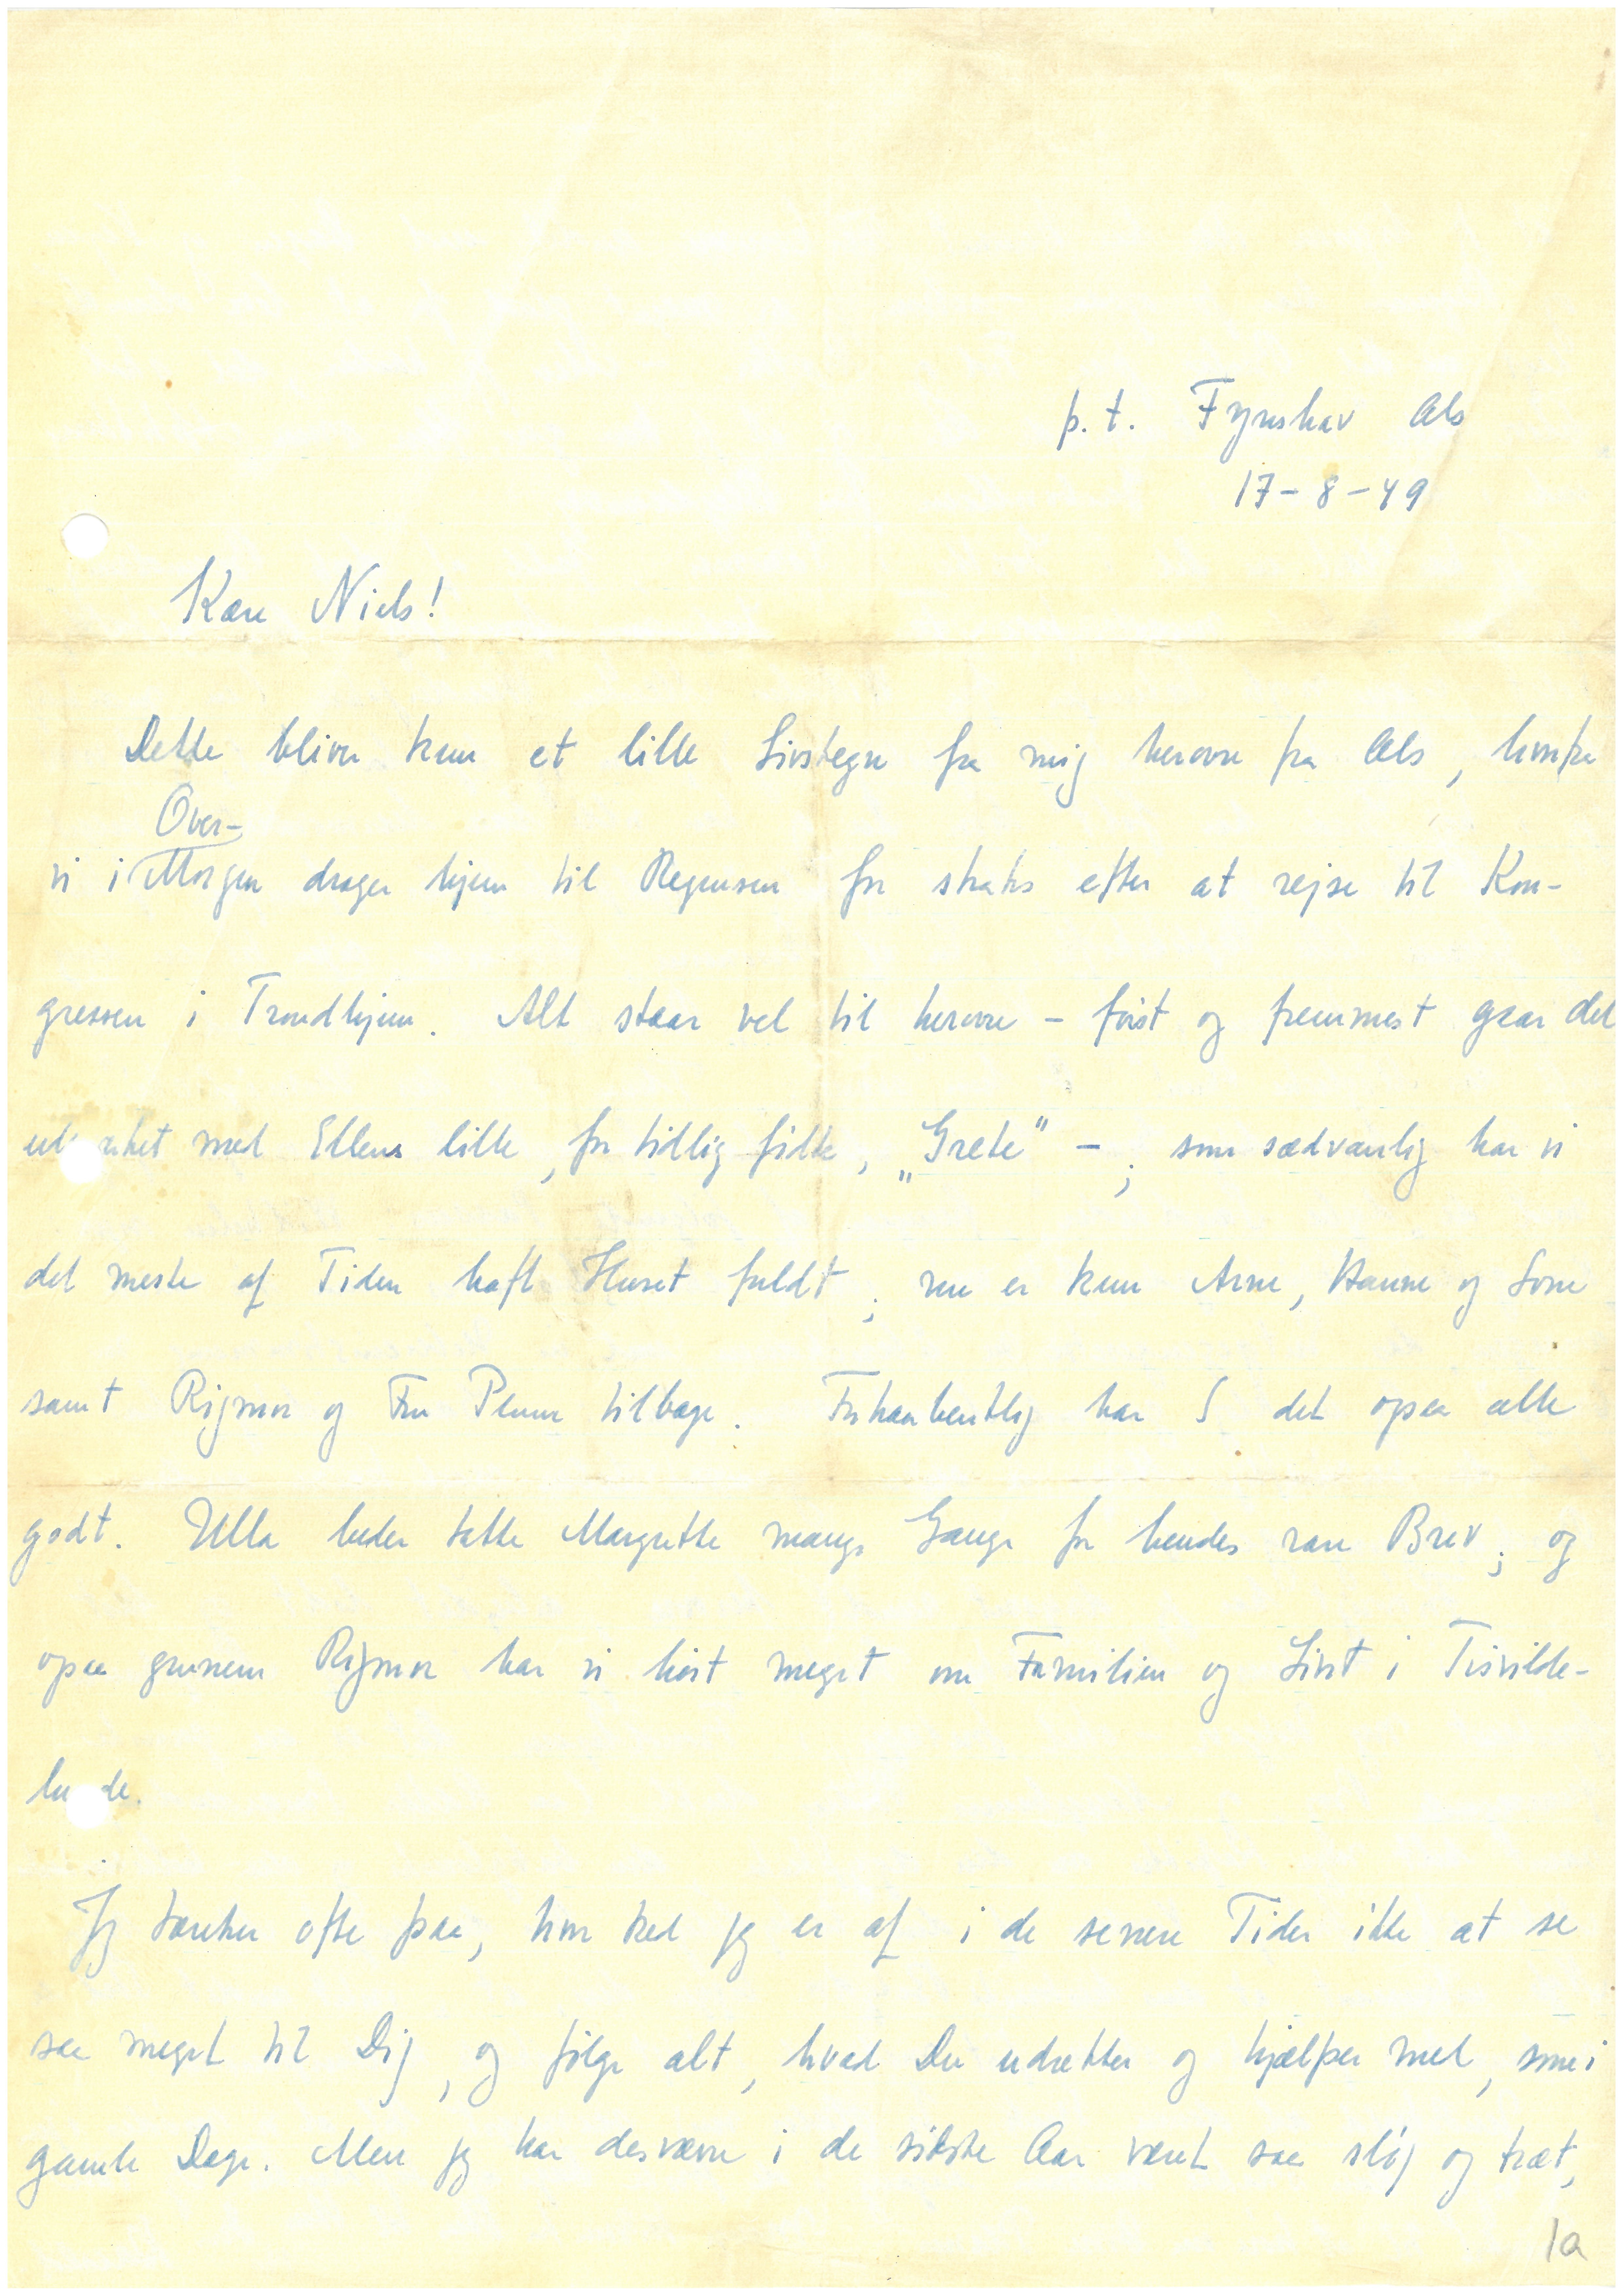 p.t. Fynshav Als
17-8-49
Kære Niels!
Dette bliver kun et lille Livstegn fra mig herovre fra Als, hvorfra
Over-
vi i Morgen drager hjem til Regensen for straks efter at rejse til Kon-
gressen i Trondhjem. Alt staar vel til herovre – først og fremmest gaar det
med Ellens lille, for tidlig fødte, „Grete" –; som sædvanlig har vi
det meste af Tiden haft Huset fuldt; nu er kun Arne, Hanne og Lone
samt Rigmor og Fru Plum tilbage. Forhaabentlig har I det ogsaa alle
godt. Ulla beder takke Margrethe mange Gange for hendes rare Brev; og
ogsaa gennem Rigmor har vi hørt meget om Familien og Livet i Tisvilde-
lu de.
Jeg tænker ofte paa, hvor ked jeg er af i de senere Tider ikke at se
saa meget til Dig, og følge alt, hvad Du udretter og hjælper med, som i
gamle Dage. Men jeg har desværre i de sidste Aar været saa sløj og træt,
1a